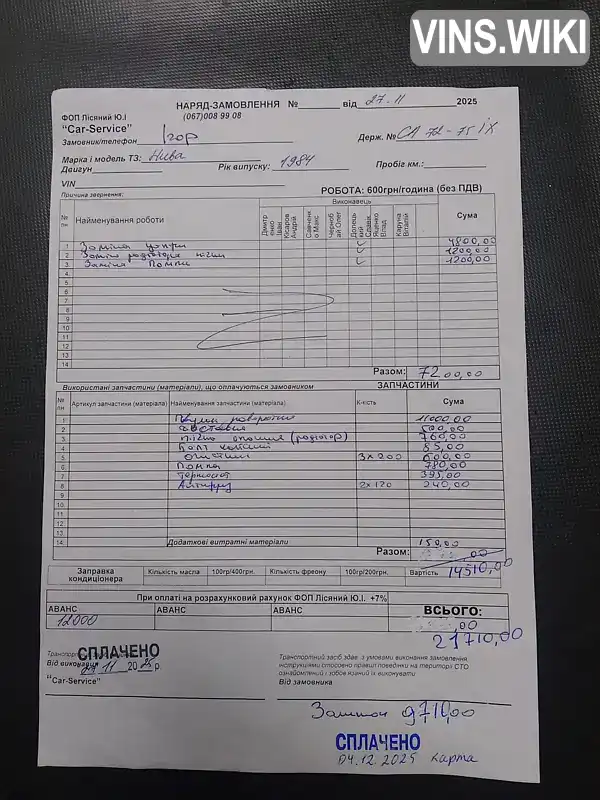 VINS.WIKI
НАРЯД-ЗАМОВЛЕННЯ №______ від 27.11 2025
ФОП Лісяний Ю.І (067)008 99 08
"Car-Service"
Замовник/телефон Ігор Держ. № СА 72-75 ІХ
Марка і модель ТЗ: Нива
Двигун Рік випуску: 1984 Пробіг км.:
VIN
Причина звернення: РОБОТА: 600грн/година (без ПДВ)
№ пн Найменування роботи Виконавець Сума
Дмитренко Іван Кісаров Андрій Савченко Макс Чернобай Олег Донецький Славік Яценко Влад Каруна Віталій
1 Заміна 4800,00
2 Заміна радіатора пічки 1200,00
3 Заміна Помпи 1200,00
4
5
6
7
8
9
10
11
12
13
14
Разом: 7200,00
Використані запчастини (матеріали), що оплачуються замовником ЗАПЧАСТИНИ
№ пн Артикул запчастини (матеріала) Найменування запчастини (матеріала) К-ість Сума
1 Кулак поворотний 11000,00
2 500,00
3 пічка (радіатор) 760,00
4 Болт 85,00
5 очистки 3 x 200 600,00
6 Помпа 780,00
7 Термостат 395,00
8 Антифриз 2 x 120 240,00
9
10
11
12
13
14 Додаткові витратні матеріали 150,00
Разом: ,00
14510,00
Заправка кондиціонера Кількість масла 100гр/400грн. Кількість фреону 100гр/200грн. Вартість
При оплаті на розрахунковий рахунок ФОП Лісяний Ю.І. +7%
АВАНС АВАНС АВАНС ВСЬОГО:
12000 ,00
21710,00
СПЛАЧЕНО
Від виконавця 27 11 2025 р.
"Car-Service"
Транспортний засіб здав з умовами виконання замовлення,
інструкціями стосовно правил поведінки на території СТО
ознайомлений і зобов'язаний їх виконувати
Від замовника
Залишок 9710,00
СПЛАЧЕНО
04.12.2025 карта